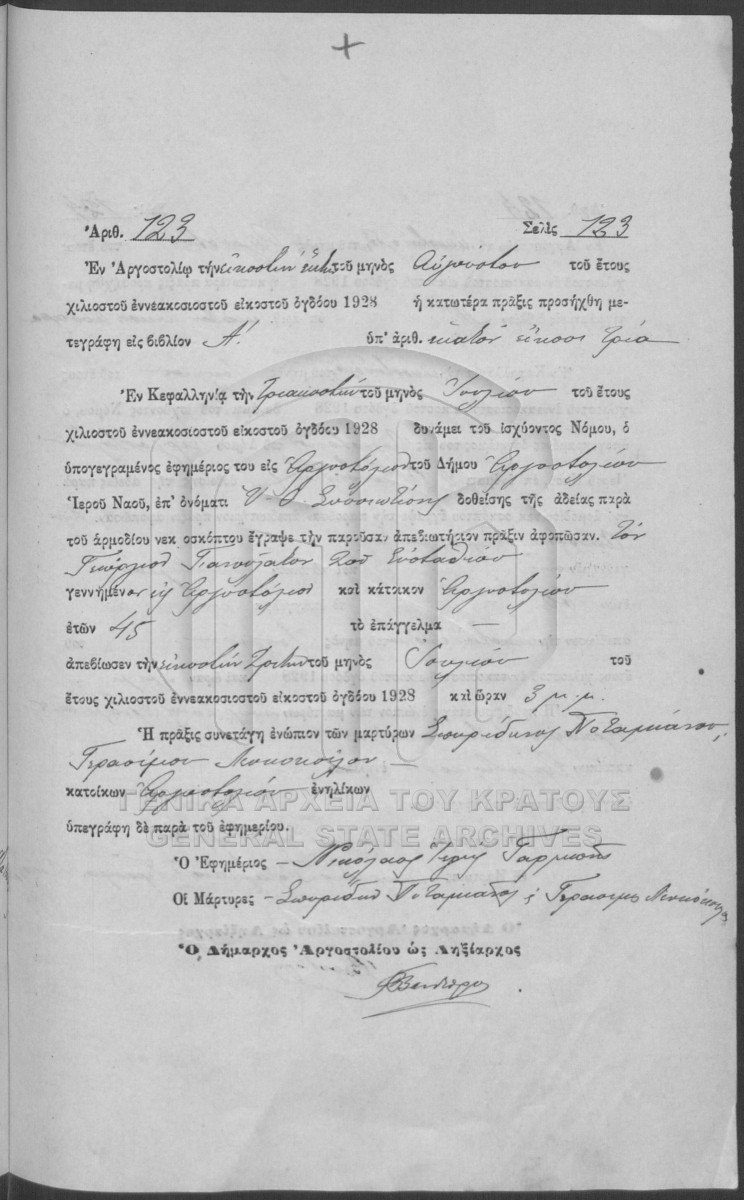 Ἀριθ. 123 Σελὶς 123
Ἐν Ἀργοστολίῳ τὴν εἰκοστὴν ἕκτ. τοῦ μηνὸς Αὐγούστου τοῦ ἔτους
χιλιοστοῦ ἐννεακοσιοστοῦ εἰκοστοῦ ὀγδόου 1928 ἡ κατωτέρα πρᾶξις προσήχθη με-
τεγράφη εἰς βιβλίον Α! ὑπ' ἀριθ. ἑκατὸν εἴκοσι τρία
Ἐν Κεφαλληνίᾳ τὴν τριακοστὴν τοῦ μηνὸς Ἰουλίου τοῦ ἔτους
χιλιοστοῦ ἐννεακοσιοστοῦ εἰκοστοῦ ὀγδόου 1928 δυνάμει τοῦ ἰσχύοντος Νόμου, ὁ
ὑπογεγραμένος ἐφημέριος του εἰς Ἀργοστόλιον τοῦ Δήμου Ἀργοστολίου
Ἱεροῦ Ναοῦ, ἐπ' ὀνόματι Σισσιωτίσης δοθείσης τῆς ἀδείας παρὰ
τοῦ ἁρμοδίου νεκ οσκόπτου ἔγραψε τὴν παροῦσαν ἀπεβιωτήριον πρᾶξιν ἀφοπῶσαν. τὸν
Γεώργιον Γιαννουλάτον τοῦ Εὐσταθίου
γεννημένον εἰς Ἀργοστόλιον καὶ κάτοικον Ἀργοστολίου
ἐτῶν 45 τὸ ἐπάγγελμα —
ἀπεβίωσεν τὴν εἰκοστὴν τρίτην τοῦ μηνὸς Ἰουλίου τοῦ
ἔτους χιλιοστοῦ ἐννεακοσιοστοῦ εἰκοστοῦ ὀγδόου 1928 καὶ ὥραν 3 μ.μ.
Ἡ πρᾶξις συνετάγη ἐνώπιον τῶν μαρτύρων Σπυρίδωνος Ποταμιάνου,
Γερασίμου —
κατοίκων Ἀργοστολίου ἐνηλίκων
ΓΕΝΙΚΑ ΑΡΧΕΙΑ ΤΟΥ ΚΡΑΤΟΥΣ
ὑπεγράφη δὲ παρὰ τοῦ ἐφημερίου.
GENERAL STATE ARCHIVES
Ὁ Ἐφημέριος – Νικόλαος Ἱερεὺς
Οἱ Μάρτυρες – Σπυρίδων Ποταμιάνος Γεράσιμος
Ὁ Δήμαρχος Ἀργοστολίου ὡς Ληξίαρχος